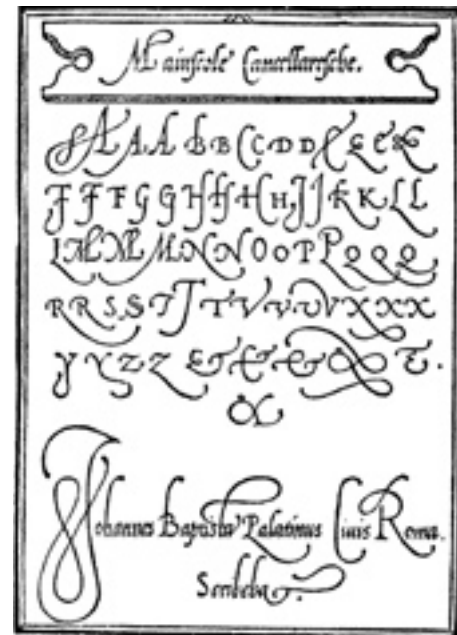 Maiuscole Cancellaresche.
A A A b B C C D D E E E E
F F F G G H H H H J J K K L L
L M M M N N O O P P Q Q Q
R R S S T T T V V V V X X X
Y Y Z Z & & & & &.
&
Johannes Baptista Palatinus Civis Roma.
Scribebat.